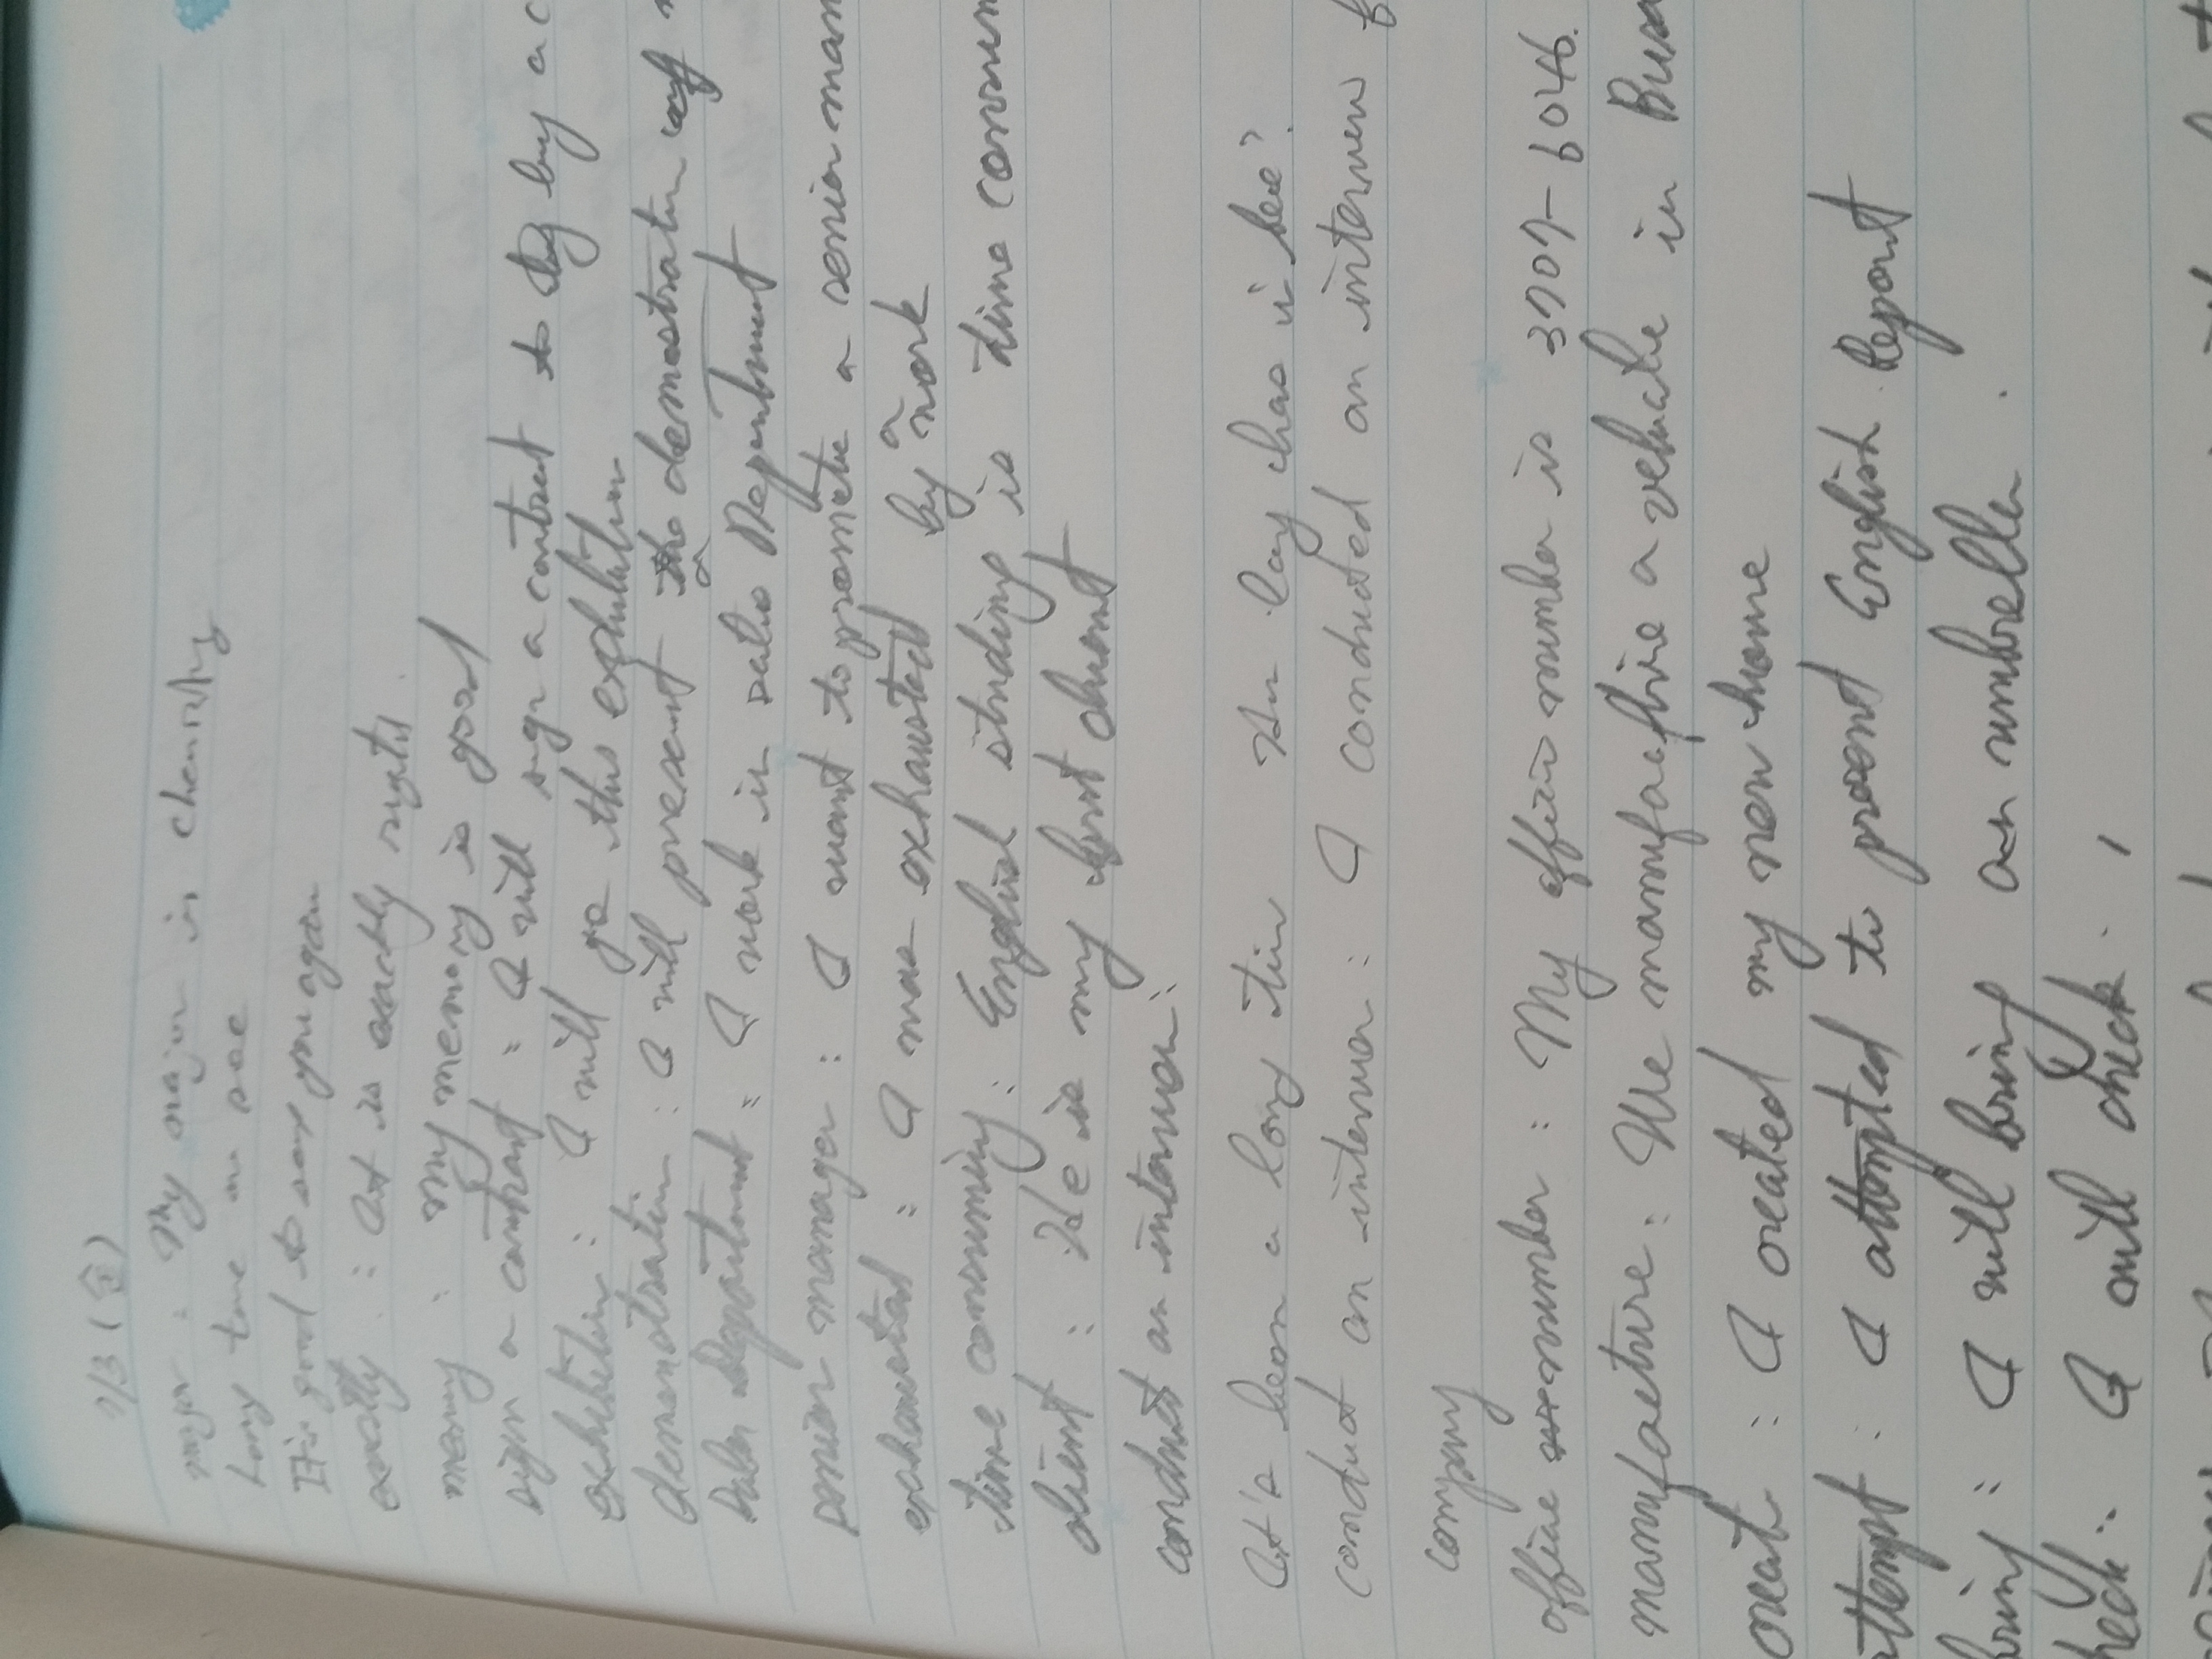 9/3 (금)
major : My major is chemistry
Long time no see
It's good to see you again
exactly : It is exactly right.
memory : my memory is good
sign a contract : I will sign a contract to buy a c
exhibition : I will go this exhibition
demonstration : I will present the a demostration
Sales Department : I work in sales Department
senior manager : I want to promote a senior man
exhausted : I was exhausted by a work
time comsuming : English studing is time consum
client : He is my first client
conduct an interview :
It's been a long time How long has it been?
conduct an interview : I conducted an interview f
company
office number : My office number is 3707-6046.
manufacture : We manufactire a vehicle in Busa
create : I created my new home
attempt : I attempted to present English Report
bring : I will bring an umbrella.
heck : I will check.